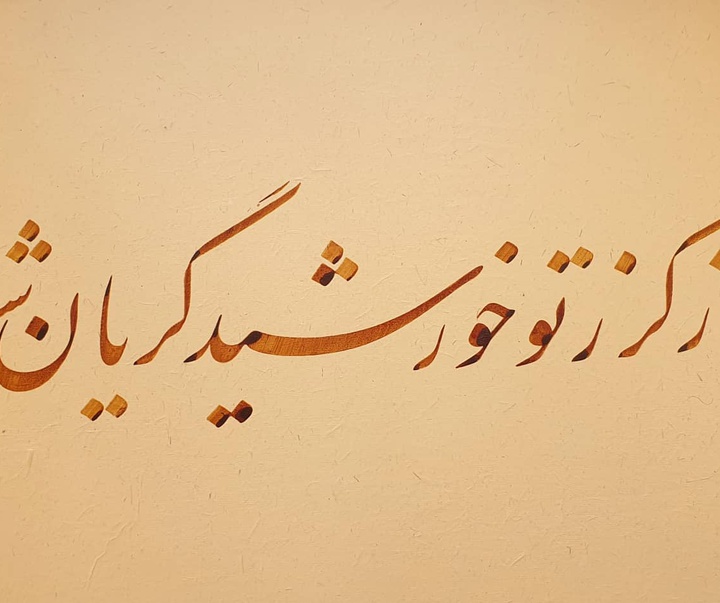 ز گرز تو خورشید گریان